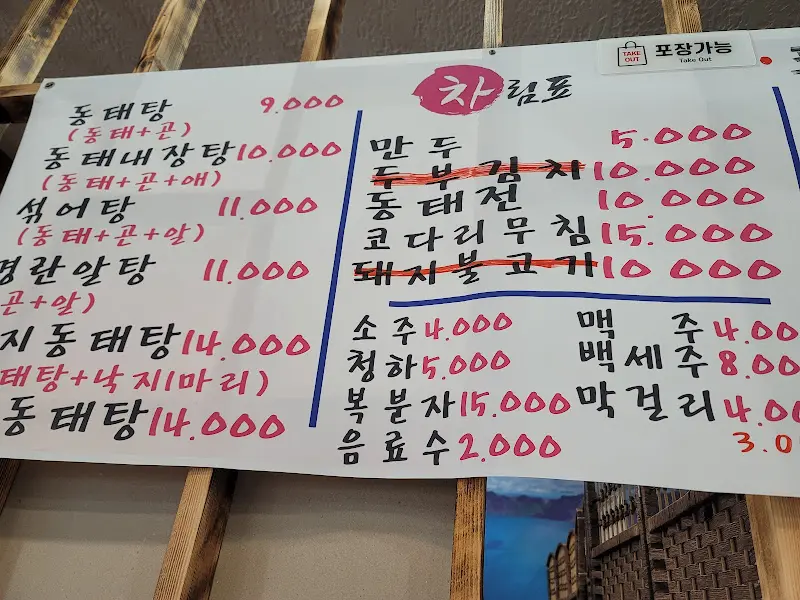 TAKE OUT
포장가능
Take Out
차림표
동태탕 9.000
(동태+곤)
동태내장탕 10.000
(동태+곤+애)
섞어탕 11.000
(동태+곤+알)
명란알탕 11.000
곤+알)
지동태탕 14.000
태탕+낙지1마리)
동태탕 14.000
만두 5.000
두부김치 10.000
동태전 10 000
코다리무침 15.000
돼지불고기 10 000
소주 4.000
청하 5.000
복분자 15.000
음료수 2.000
맥주 4.00
백세주 8.00
막걸리 4.00
3.0